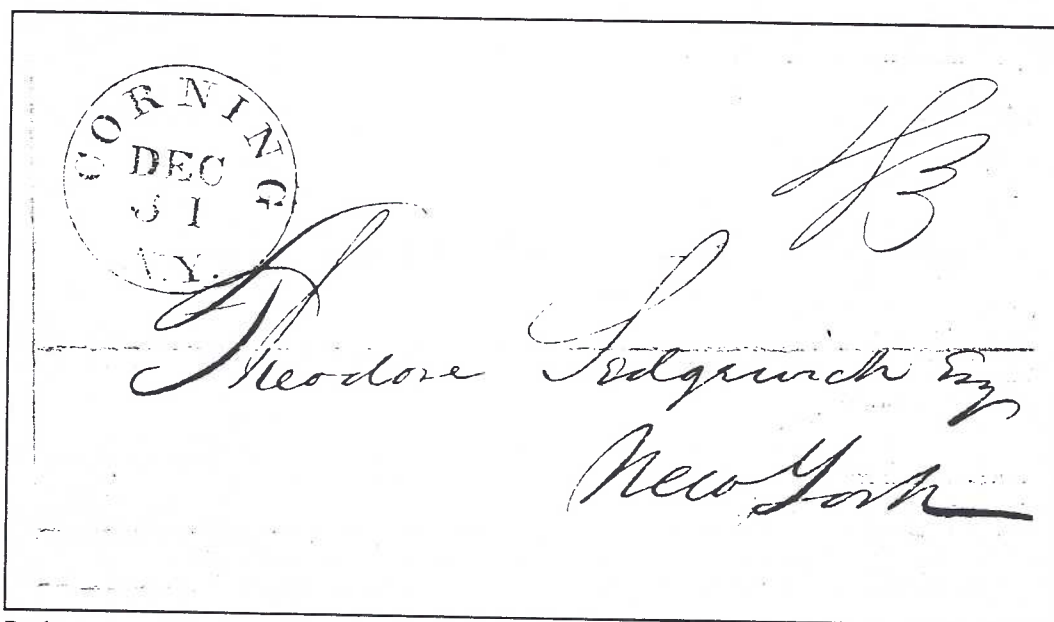 CORNING
DEC
31
N.Y.
Theodore Sedgwick Esq
New York